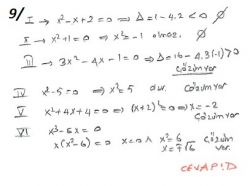 9/ I → x²-x+2=0 ⇒ Δ=1-4.2<0. ∅
II → x²+1=0 ⇒ x²=-1 olmaz. ∅
III → 3x²-4x-1=0 ⇒ Δ=16-4.3(-1)>0
Çözüm var
IV x²-5=0 ⇒ x²=5 dur. Çözüm var
V x²+4x+4=0 ⇒ (x+2)²=0 ⇒ x=-2
Çözüm var
VI x³-6x=0
x(x²-6)=0 x=0 ∧ x²=6 Çözüm
x=∓√6 var
CEVAP!D